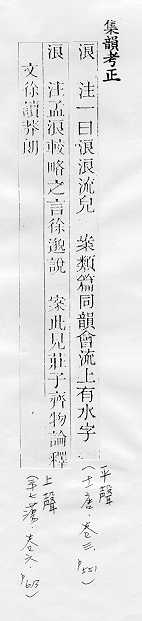 集韻考正
浪 注一曰浪浪流皃 案類篇同韻會流上有水字
浪 注孟浪較略之言徐邈說 案此見莊子齊物論釋
文徐讀莽朗
平聲
(十一唐‧卷三‧
上聲
(三十七蕩‧卷六‧